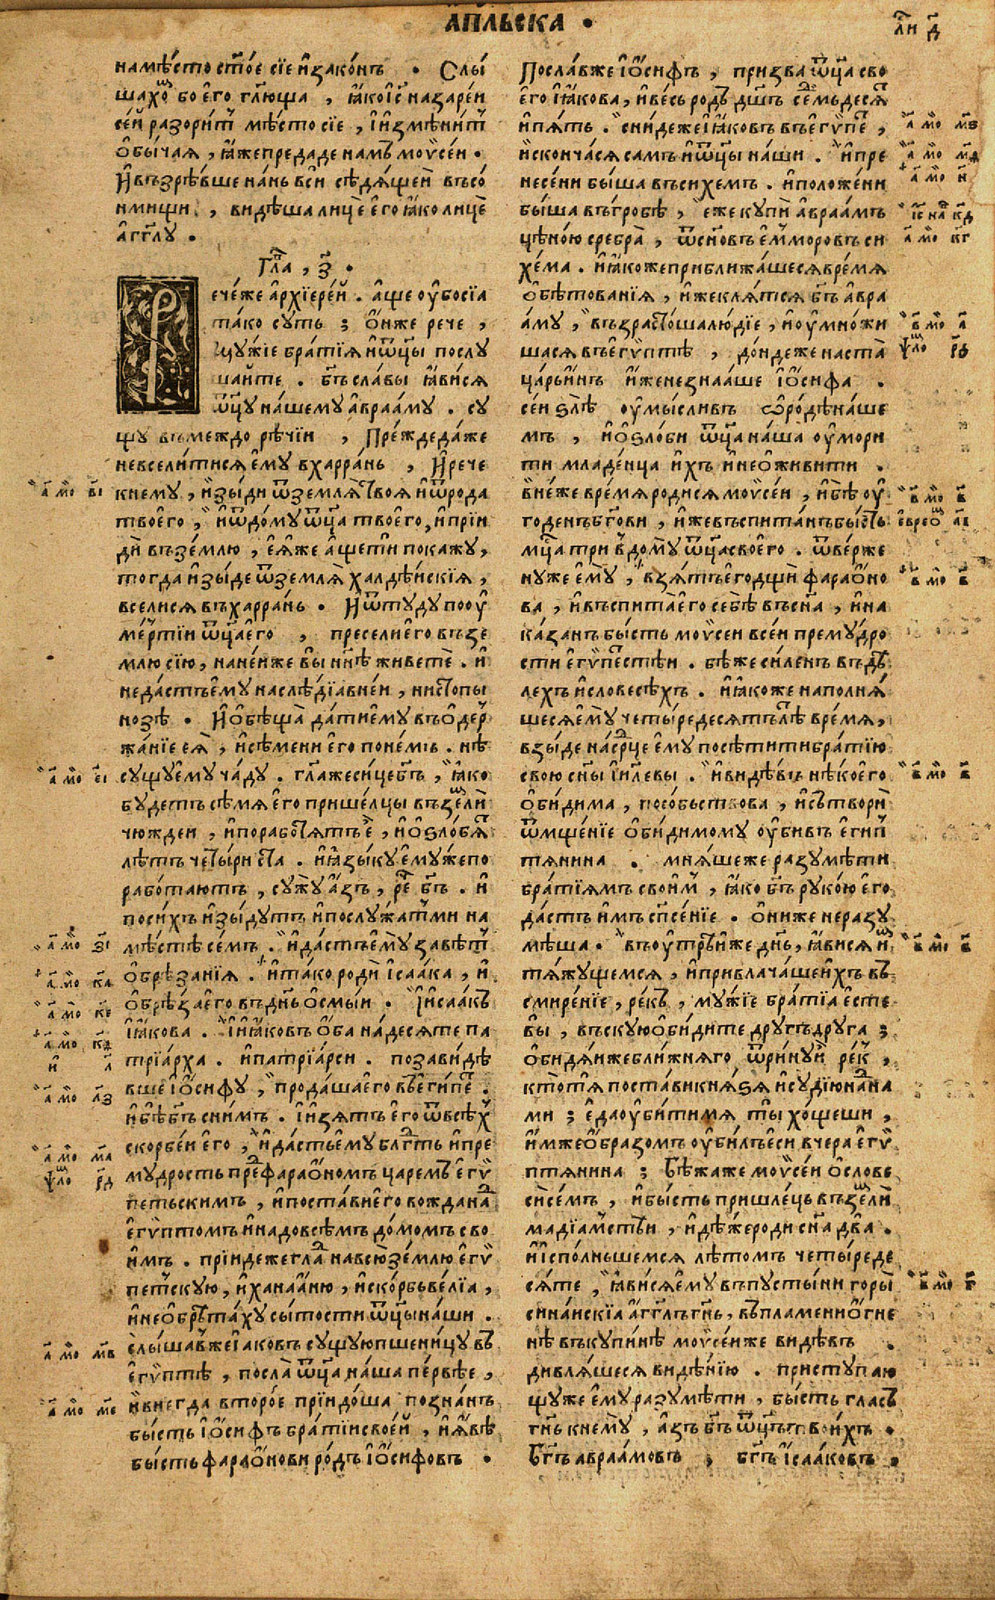 АПЛЬСКА .
ли д
намѣсто ст҃ое сїе изаконъ . Слы
шахѡ бо его гл҃юща , ꙗкоІс҃ назарѣи
сеи разорит мѣсто сїе , иизмѣнит
обычая , ꙗжепредаде намъ моѵсеи .
Ивъзрѣвше нань вси сѣдящеи въсо
нмищи , видѣша лице его ꙗко лице
агг҃лу .
Гла , з҃ .
ечеже архїереи . аще убосїа
тако суть ; Ониже рече ,
мужїе братїя иѿц҃ы послу
шаите . бг҃ъ славы ꙗвися
ѿц҃у нашему аврааму . су
щу въмеждо рѣчїи , Преждедаже
невселитися ему вхаррань , Ирече
кнему , изыди ѿземлятвоя иѿрода
твоего , иѿдому ѿц҃а твоего, ипрїи
ди въземлю , еяже ащети покажу ,
тогда изыде ѿземля халдѣискїя ,
вселися въхаррань . Иѿтуду поу
мертїи ѿц҃аего , пресели его възе
млю сїю, нанеиже вы нн҃ѣ живете . и
недастъему наслѣдїавнеи , нистопы
нозѣ . Иобѣща дати ему въодер
жанїе ея , исѣмени его понемъ . не
сущуему чаду . гл҃ажесицебг҃ъ , ꙗко
будетъ сѣмя его пришелцы въземли
чюждеи , ипоработятъе , иоѕлобят
лѣтъ четыриста . иꙗзыку емужепо
работаютъ , сужуазъ , рече бг҃ъ . и
посихъ изыдутъ ипослужатми на
мѣстѣ семъ . идастъему завѣт
обрѣзанїя . итако роди исаака , и
обрѣза его въдн҃ь осмыи . Иисаакъ
ꙗкова . Иꙗковъ оба надесяте па
трїарха . ипатрїарси . позавидѣ
вше іѡсифу , продаша его въегипет .
ибѣбг҃ъ снимъ . иизятъ его ѿвсѣх
скорбеи его , идастьему блг҃ть ипре
мудрость пред фараономъ царемъ егѵ
петьскимъ , ипостави его вождана
егѵптомъ инадовсѣмъ домомъ сво
имъ . прїидежеглад навсюземлю егѵ
петскую, иханаанию , искорбьвелїа ,
инеобрѣтаху сытости ѿц҃ы наши .
слышавжеїаковъ сущуюпшеницу въ
егѵптѣ , посла ѿц҃а наша первѣе ,
ивнегда второе прїидоша познанъ
бысть іѡсифъ братїисвоеи , иявѣ
бысть фараонови родъ іѡсифовъ .
Пославже іѡсифъ , призва ѿц҃а сво
его ꙗкова, ивесь родъ дш҃ъ семьдеся
ипять . снидежеїаковъ въегѵпет ,
искончася самъ иѿц҃ы наши . ипре
несени быша въсихемъ . иположени
быша въгробѣ , еже купи авраамъ
цѣною сребра , ѿсыновъ емморовъ си
хема . иꙗкожеприближашеся время
обѣтованїя , имже клятся бг҃ъ авра
аму , възрастошалюдїе , иоумножи
шася въегѵптѣ , дондеже наста
царьинъ иженезнааше іѡсифа .
сеи ѕлѣ умысливъ ѡродѣнаше
мъ , иоѕлоби ѿц҃а наша умори
ти младенца ихъ инеоживити .
Внеже время родися моѵсеи , ибѣ у
годенъбг҃ови , ижевъспитанъбысть
мц҃а три вдому ѿц҃асвоего . ѿверже
нуже ему , взятъегодщи фараоно
ва , ивъспитаего себѣ въсн҃а , ина
казанъ бысть моѵсеи всеи премудро
сти егѵпестѣи . бѣже силенъ въдѣ
лехъ исловесѣхъ . иꙗкоже наполня
шесяему четыредесятълѣт время ,
взыде насрдце ему посѣтитибратїю
свою сн҃ы іил҃евы . ивидѣвъ нѣкоего
обидима , пособьствова , исътвори
ѿмщенїе обидимому убивъ египт
тянина . мняшеже разумѣти
братїямъ своим , ꙗко бг҃ъ рукою его
дастъ имъ сп҃сенїе . Ониже неразу
мѣша . въутрѣиже дн҃ь, ꙗвися им
тяжущемся , ипривлачашеихъ въ
смиренїе , рекъ , мужїе братїа есте
вы , въскуюобидите другъдруга ;
обидяижеближняго ѿринуи рек ,
ктотя поставикняѕя исудїюнана
ми ; едаубитимя ты хощеши ,
имжеобразомъ убилъеси вчера егѵ
птянина ; Бѣжаже моѵсеи ослове
сисемъ , ибысть пришлець въземли
мадїамстѣи , идѣжероди сн҃а два .
иисполньшемся лѣтомъ четыреде
сяте , ꙗвисяему въпустыни горы
синаискїа агг҃лъгн҃ь, въпламенногне
нѣ въкупинѣ моѵсеиже видѣвъ .
дивляшеся видѣнїю . приступаю
щуже ему разумѣти , бысть гласъ
гн҃ь кнему , азъ бг҃ъ ѿц҃ътвоихъ .
бг҃ъ авраамовъ , бг҃ъ исааковъ .